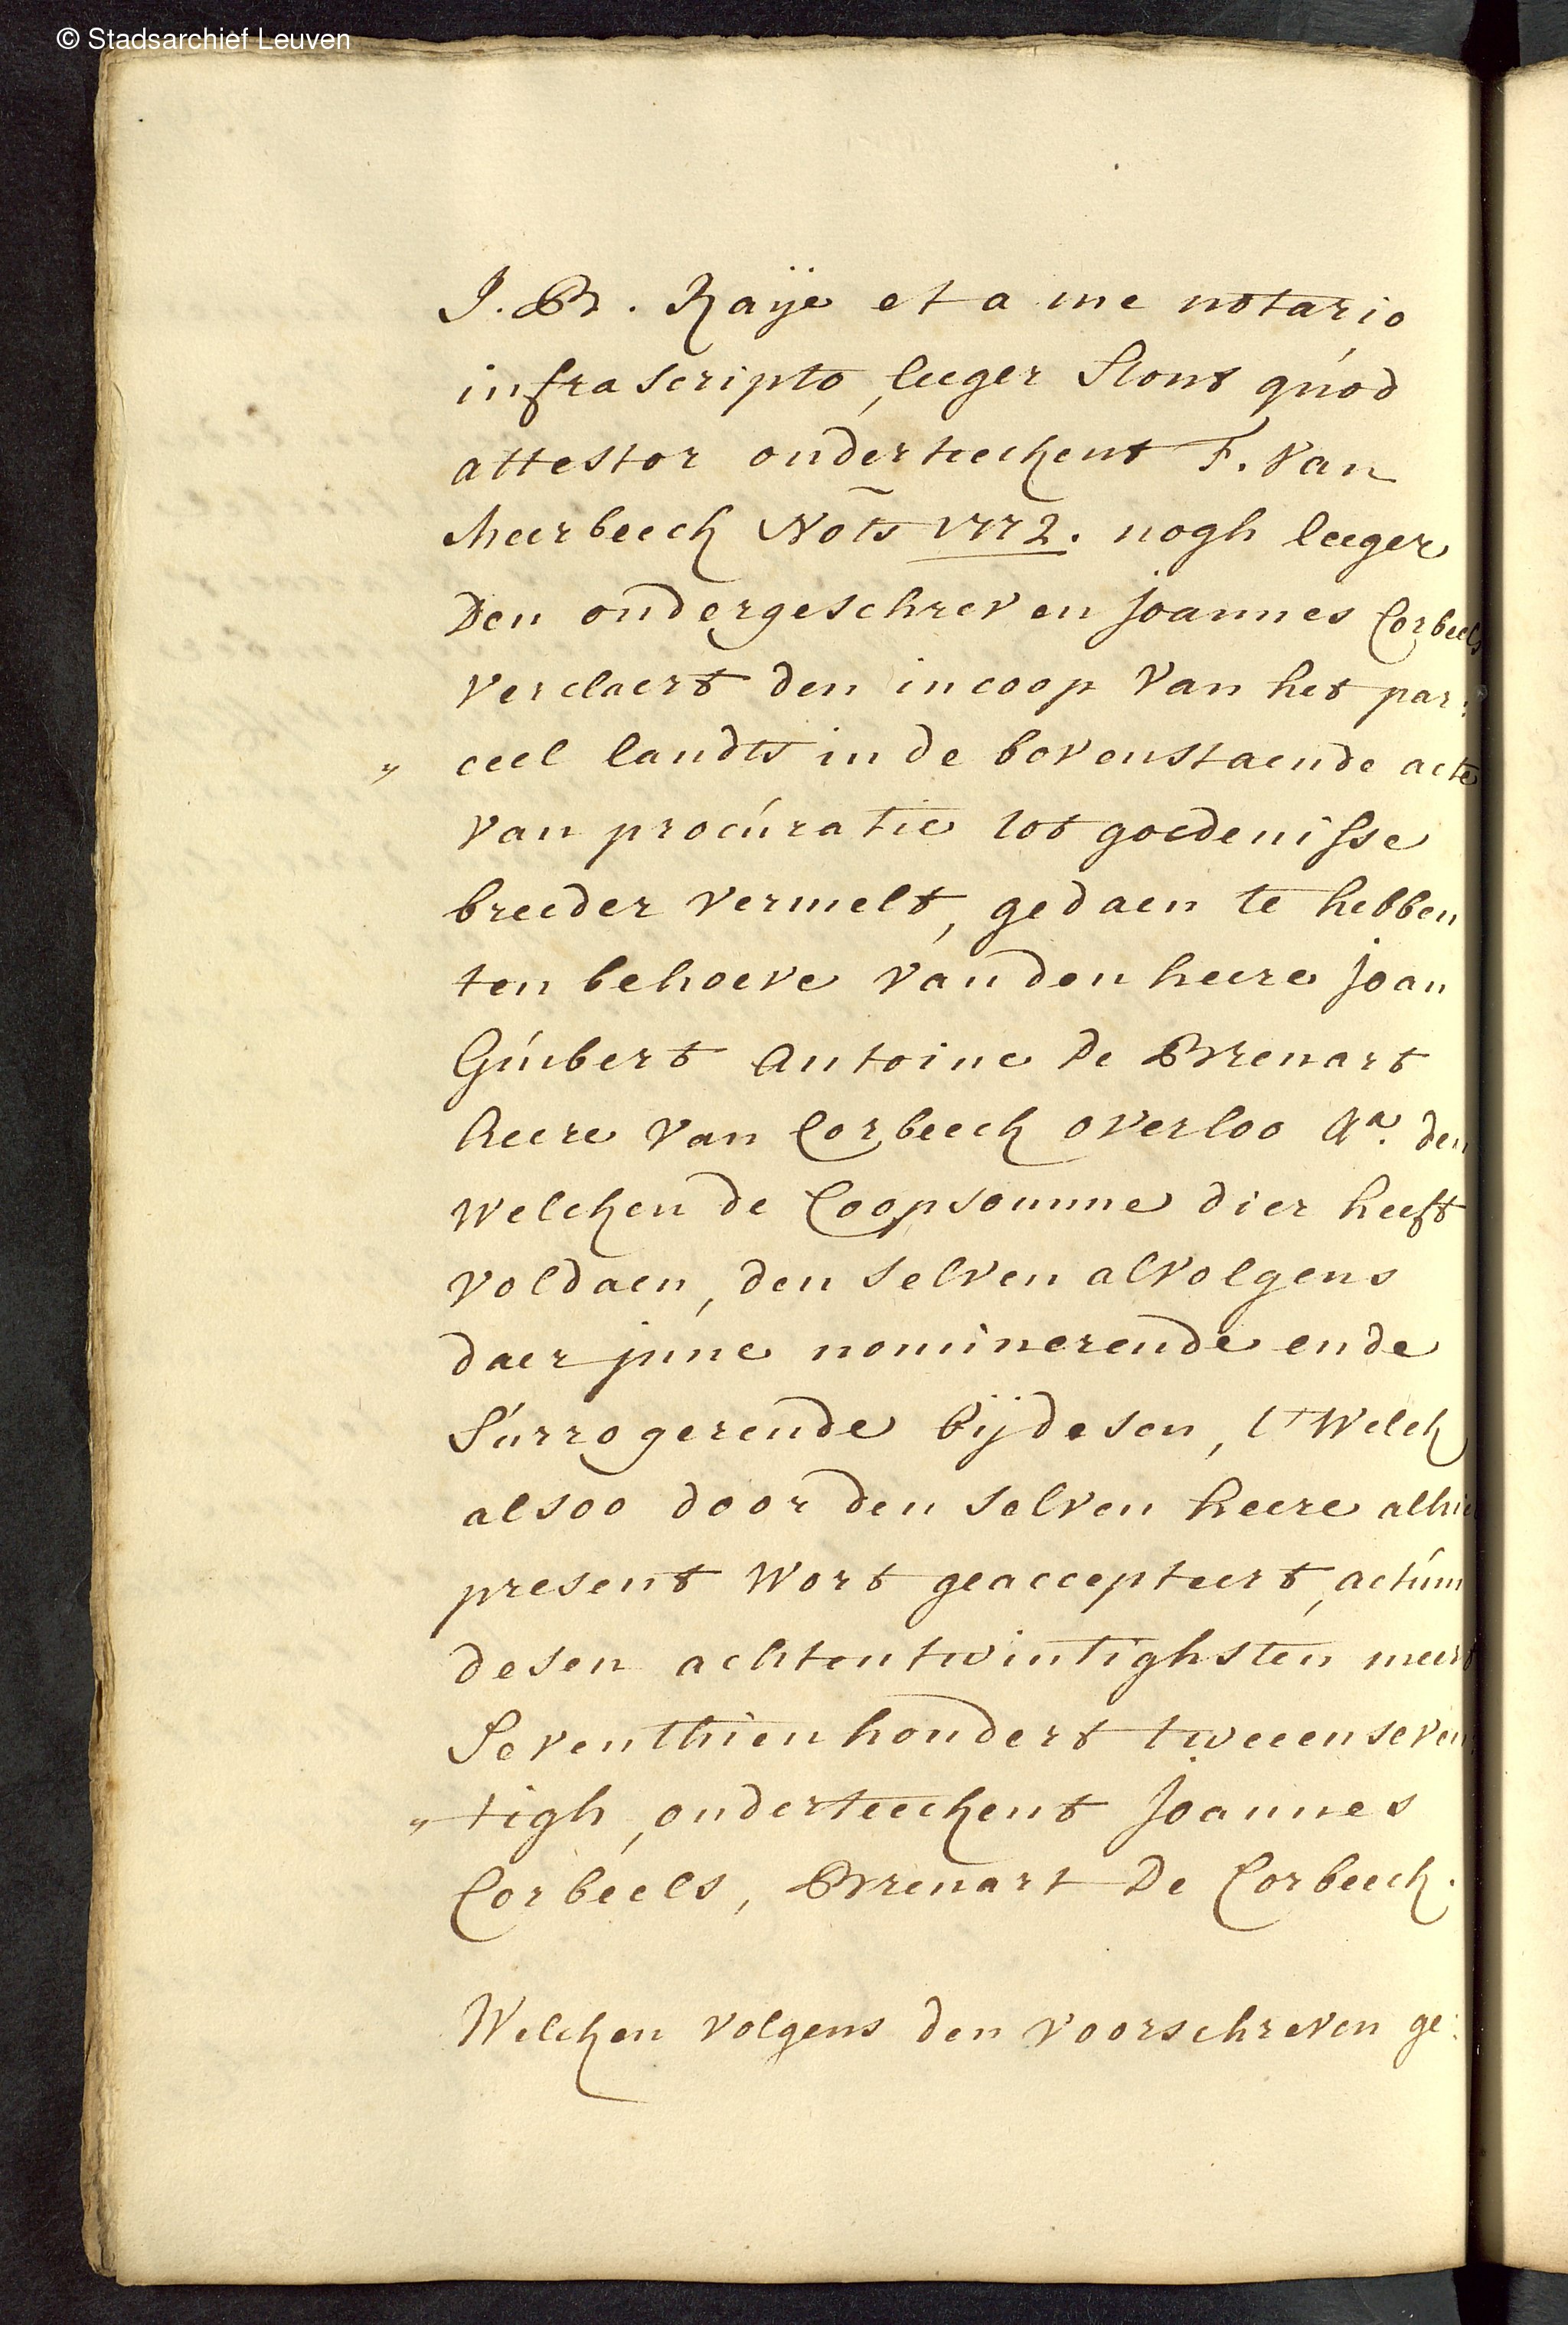 © Stadsarchief Leuven
J. B. Raije et a me notario
infrascripto, leeger stont quod
attestor onderteeckent F. Van
Meerbeeck Nots 1772. nogh leeger
Den ondergeschreven joannes Corbeels
verclaert den incoop van het par:
" ceel landts in de bovenstaende acte
van procuratie tot goedenisse
breeder vermelt, gedaen te hebben
ten behoeve van den heere joan
Guibert Antoine De Brenart
heere van Corbeeck overloo &a. den
welcken de Coopsomme dier heeft
voldaen, den selven alvolgens
daer jnne nominerende ende
Surrogerende bij desen, t welck
alsoo door den selven heere alhier
present wort geaccepteert, actum
desen achtentwintighsten meert
Seventhien hondert tweeenseven:
" tigh, onderteeckent joannes
Corbeels, Brenart De Corbeeck.
Welcken volgens den voorschreven ge: